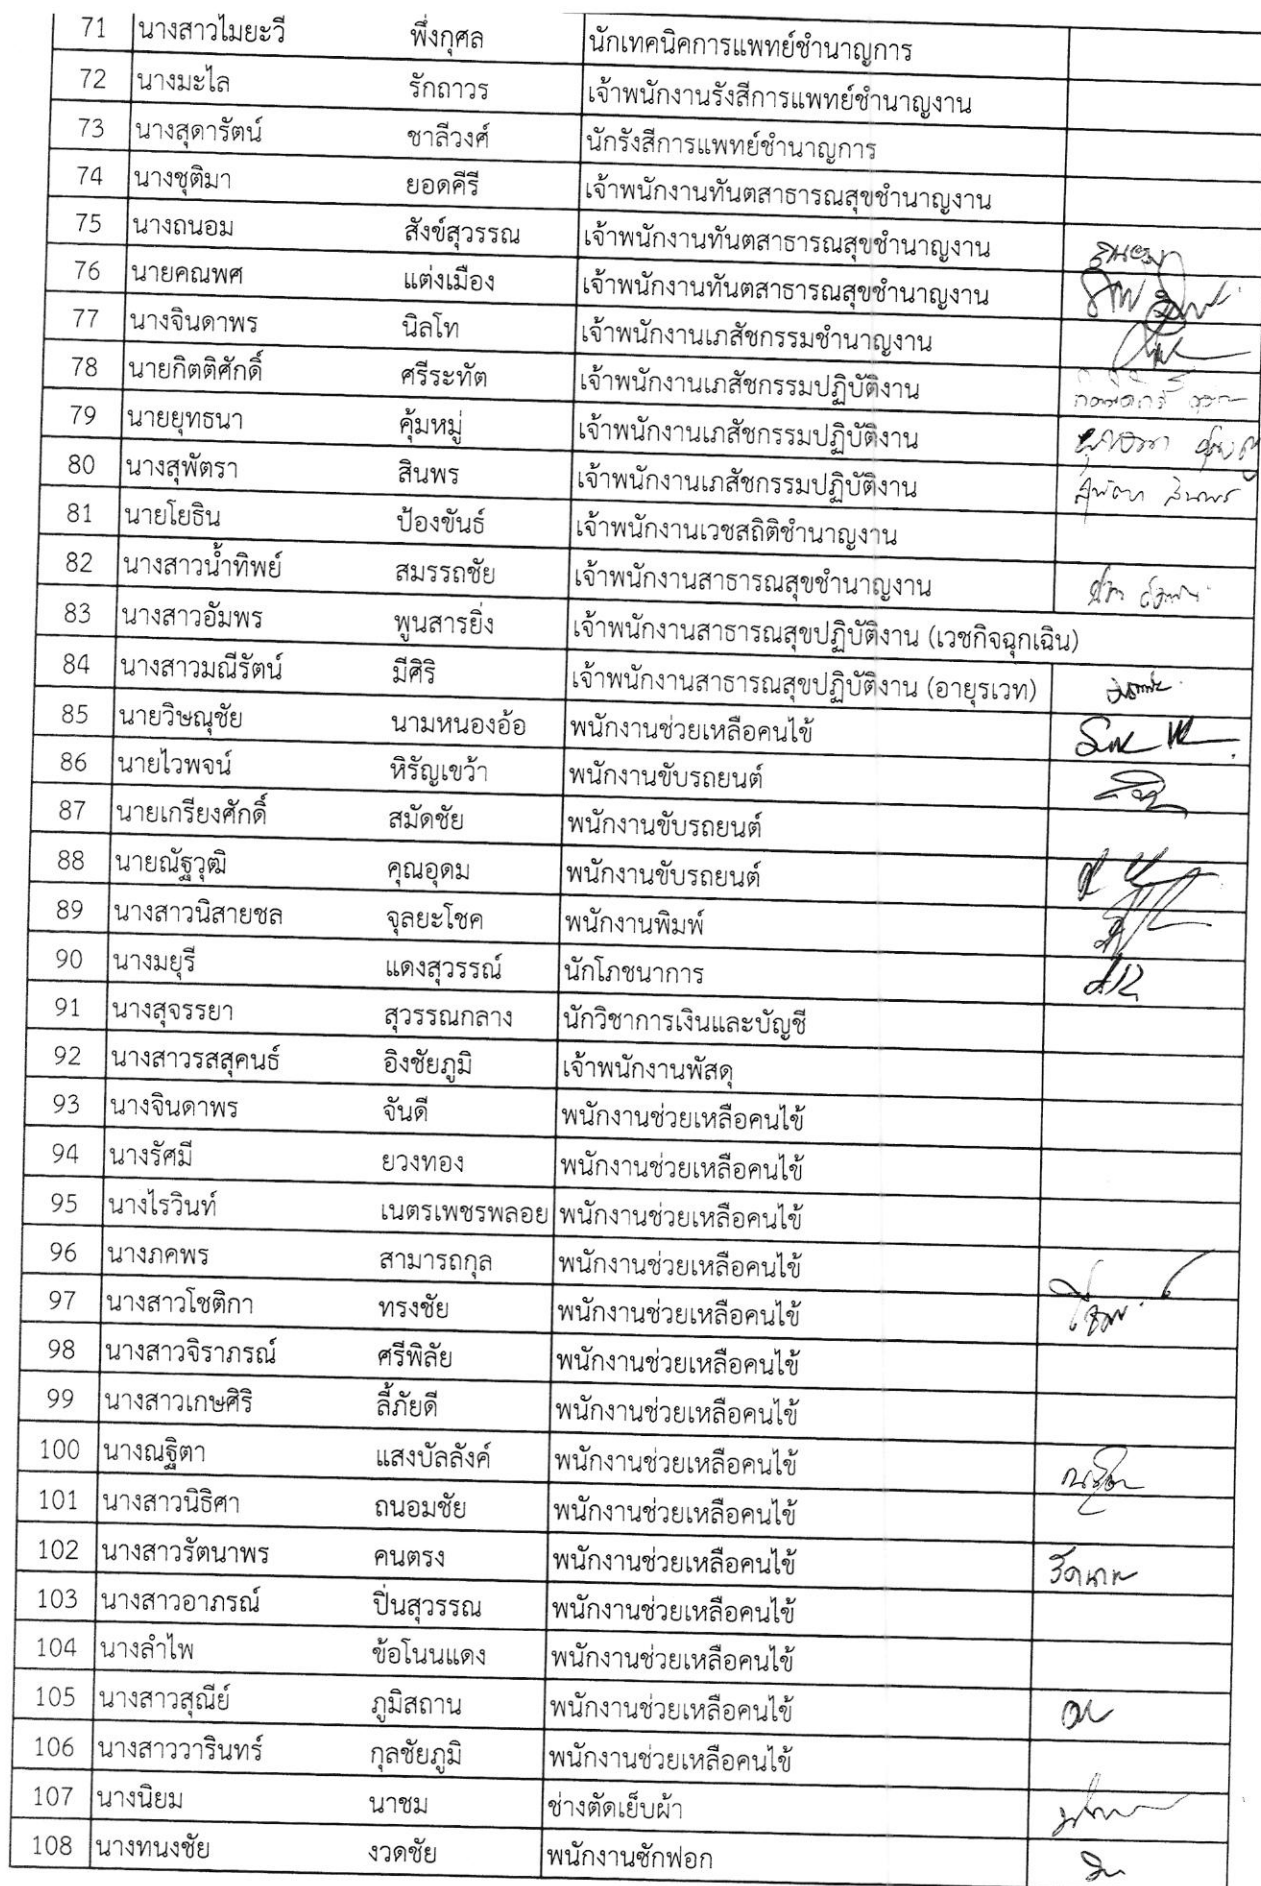 71 นางสาวไมยะวี พึ่งกุศล นักเทคนิคการแพทย์ชำนาญการ
72 นางมะไล รักถาวร เจ้าพนักงานรังสีการแพทย์ชำนาญงาน
73 นางสุดารัตน์ ชาลีวงศ์ นักรังสีการแพทย์ชำนาญการ
74 นางชุติมา ยอดคีรี เจ้าพนักงานทันตสาธารณสุขชำนาญงาน
75 นางถนอม สังข์สุวรรณ เจ้าพนักงานทันตสาธารณสุขชำนาญงาน
76 นายคณพศ แต่งเมือง เจ้าพนักงานทันตสาธารณสุขชำนาญงาน
77 นางจินดาพร นิลโท เจ้าพนักงานเภสัชกรรมชำนาญงาน
78 นายกิตติศักดิ์ ศรีระทัต เจ้าพนักงานเภสัชกรรมปฏิบัติงาน
79 นายยุทธนา คุ้มหมู่ เจ้าพนักงานเภสัชกรรมปฏิบัติงาน
80 นางสุพัตรา สินพร เจ้าพนักงานเภสัชกรรมปฏิบัติงาน สุพัตรา สินพร
81 นายโยธิน ป้องขันธ์ เจ้าพนักงานเวชสถิติชำนาญงาน
82 นางสาวน้ำทิพย์ สมรรถชัย เจ้าพนักงานสาธารณสุขชำนาญงาน
83 นางสาวอัมพร พูนสารยิ่ง เจ้าพนักงานสาธารณสุขปฏิบัติงาน (เวชกิจฉุกเฉิน)
84 นางสาวมณีรัตน์ มีศิริ เจ้าพนักงานสาธารณสุขปฏิบัติงาน (อายุรเวท)
85 นายวิษณุชัย นามหนองอ้อ พนักงานช่วยเหลือคนไข้
86 นายไวพจน์ หิรัญเขว้า พนักงานขับรถยนต์
87 นายเกรียงศักดิ์ สมัดชัย พนักงานขับรถยนต์
88 นายณัฐวุฒิ คุณอุดม พนักงานขับรถยนต์
89 นางสาวนิสายชล จุลยะโชค พนักงานพิมพ์
90 นางมยุรี แดงสุวรรณ์ นักโภชนาการ
91 นางสุจรรยา สุวรรณกลาง นักวิชาการเงินและบัญชี
92 นางสาวรสสุคนธ์ อิงชัยภูมิ เจ้าพนักงานพัสดุ
93 นางจินดาพร จันดี พนักงานช่วยเหลือคนไข้
94 นางรัศมี ยวงทอง พนักงานช่วยเหลือคนไข้
95 นางไรวินท์ เนตรเพชรพลอย พนักงานช่วยเหลือคนไข้
96 นางภคพร สามารถกุล พนักงานช่วยเหลือคนไข้
97 นางสาวโชติกา ทรงชัย พนักงานช่วยเหลือคนไข้
98 นางสาวจิราภรณ์ ศรีพิลัย พนักงานช่วยเหลือคนไข้
99 นางสาวเกษศิริ ลี้ภัยดี พนักงานช่วยเหลือคนไข้
100 นางณฐิตา แสงบัลลังค์ พนักงานช่วยเหลือคนไข้
101 นางสาวนิธิศา ถนอมชัย พนักงานช่วยเหลือคนไข้
102 นางสาวรัตนาพร คนตรง พนักงานช่วยเหลือคนไข้
103 นางสาวอาภรณ์ ปิ่นสุวรรณ พนักงานช่วยเหลือคนไข้
104 นางลำไพ ข้อโนนแดง พนักงานช่วยเหลือคนไข้
105 นางสาวสุณีย์ ภูมิสถาน พนักงานช่วยเหลือคนไข้
106 นางสาววารินทร์ กุลชัยภูมิ พนักงานช่วยเหลือคนไข้
107 นางนิยม นาชม ช่างตัดเย็บผ้า
108 นางทนงชัย งวดชัย พนักงานซักฟอก